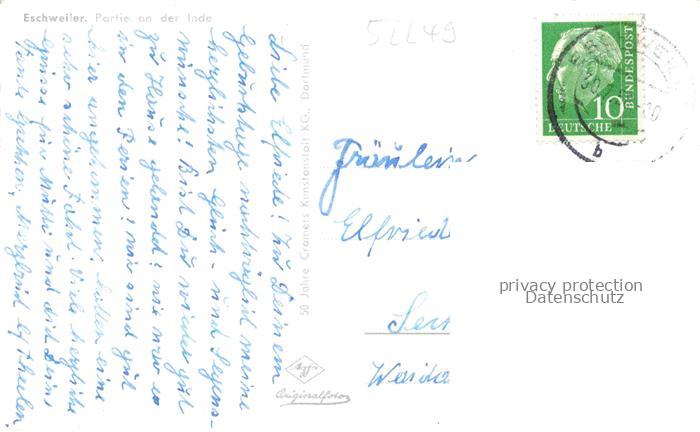 Eschweiler. Partie an der Inde
52249
Liebe Elfriede! Zu Deinem
Geburtstage nachträglich meine
herzlichsten Glück- und Segens-
wünsche! Bist Du wieder gut
zu Hause gelandet? wie war es
in den Ferien? wir sind gut
hier angekommen, hatten eine
sehr schöne Fahrt. Viele herzliche
Grüsse für Mutti und dich Deine
Tante
50 Jahre Cramers Kunstanstalt KG., Dortmund
Agfa
Originalfoto
Fräulein
Elfried
10
DEUTSCHE
BUNDESPOST
b
privacy protection
Datenschutz